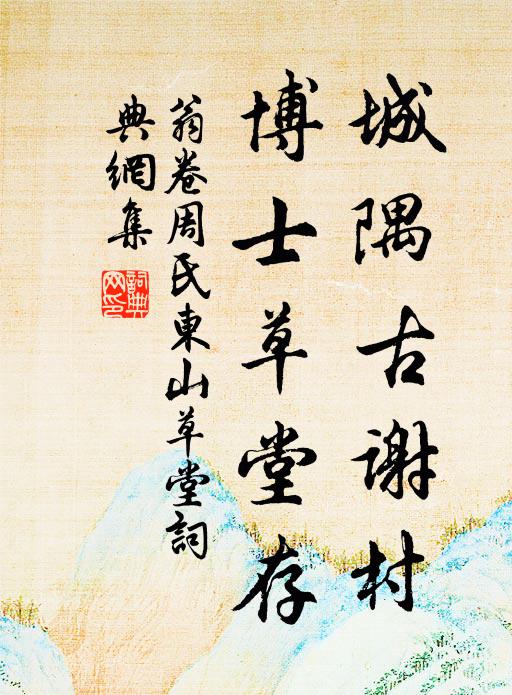 城隅古谢村
博士草堂存
翁卷周氏東山草堂詞
典網集
詞典
网印